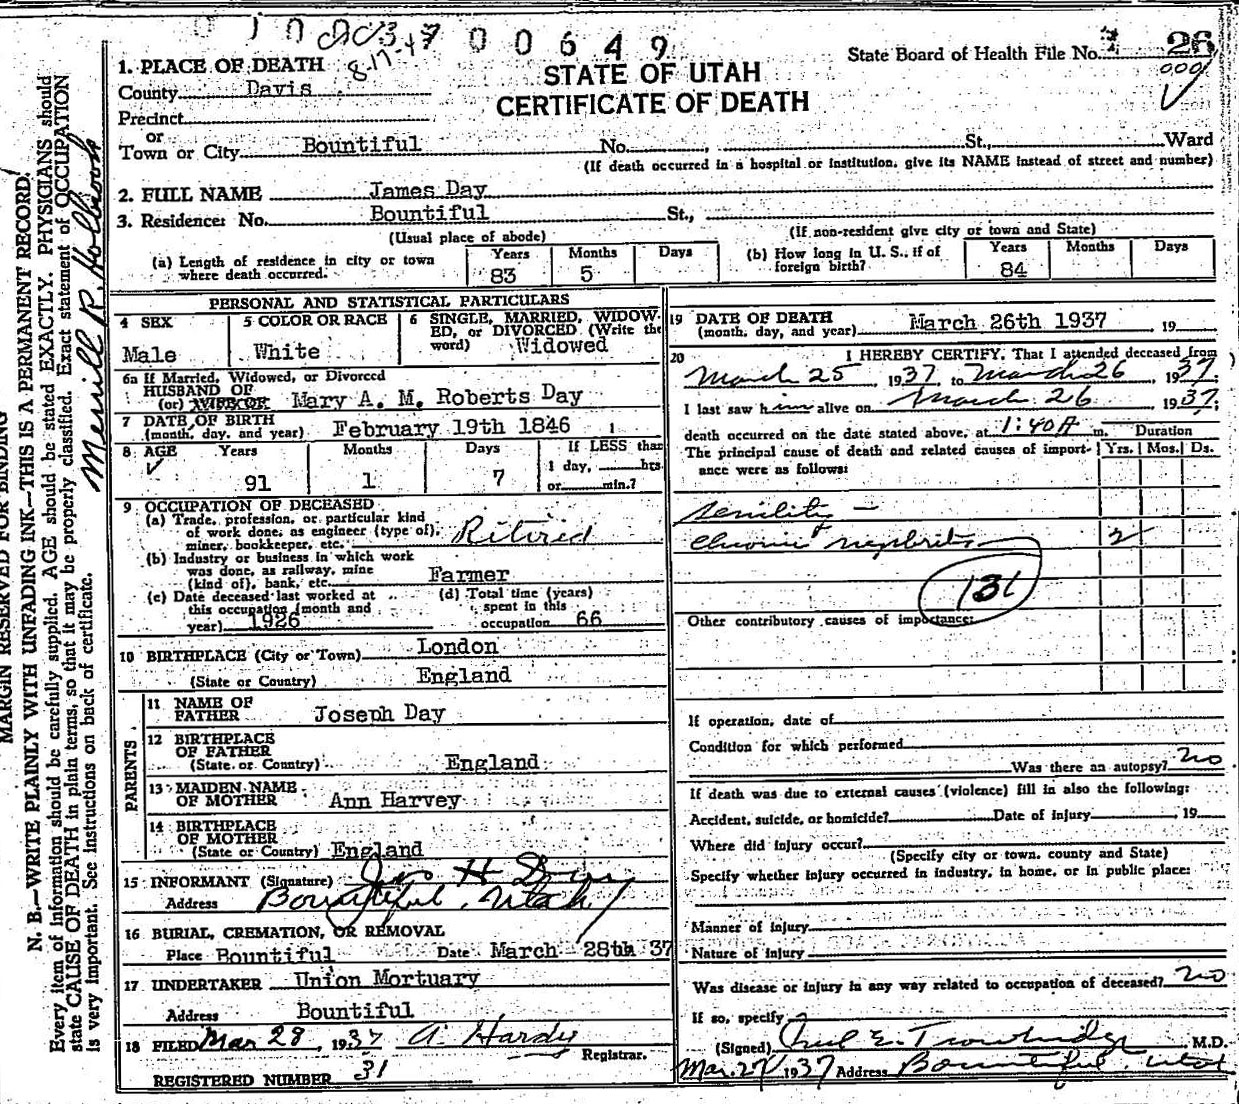 00649
8-17-47
State Board of Health File No. 26
STATE OF UTAH
CERTIFICATE OF DEATH
1. PLACE OF DEATH
County Davis
Precinct
or
Town or City Bountiful No. St., Ward
(If death occurred in a hospital or institution, give its NAME instead of street and number)
2. FULL NAME James Day
3. Residence: No. Bountiful St.,
(Usual place of abode) (If non-resident give city or town and State)
(a) Length of residence in city or town where death occurred. Years 83 Months 5 Days
(b) How long in U. S., if of foreign birth? Years 84 Months Days
PERSONAL AND STATISTICAL PARTICULARS
4 SEX Male
5 COLOR OR RACE White
6 SINGLE, MARRIED, WIDOW-
ED, or DIVORCED (Write the
word) Widowed
6a If Married, Widowed, or Divorced
HUSBAND OF
(or) WIFE OF Mary A. M. Roberts Day
7 DATE OF BIRTH
(month, day, and year) February 19th 1846
8 AGE Years 91 Months 1 Days 7
If LESS than
1 day, hrs.
or min.?
9 OCCUPATION OF DECEASED
(a) Trade, profession, or particular kind
of work done, as engineer (type of),
miner, bookkeeper, etc. Retired
(b) Industry or business in which work
was done, as railway, mine
(kind of), bank, etc. Farmer
(c) Date deceased last worked at
this occupation (month and
year) 1926
(d) Total time (years)
spent in this
occupation 66
10 BIRTHPLACE (City or Town) London
(State or Country) England
PARENTS
11 NAME OF
FATHER Joseph Day
12 BIRTHPLACE
OF FATHER
(State or Country) England
13 MAIDEN NAME
OF MOTHER Ann Harvey
14 BIRTHPLACE
OF MOTHER
(State or Country) England
15 INFORMANT (Signature)
Address Bountiful, Utah
16 BURIAL, CREMATION, OR REMOVAL
Place Bountiful Date March 28th 37
17 UNDERTAKER Union Mortuary
Address Bountiful
18 FILED Mar 28, 1937 A. Hardy
Registrar.
REGISTERED NUMBER 31
19 DATE OF DEATH
(month, day, and year) March 26th 1937 19
20 I HEREBY CERTIFY, That I attended deceased from
March 25 1937 to March 26 1937
I last saw him alive on March 26 1937
death occurred on the date stated above, at 1:40 A m. Duration
The principal cause of death and related causes of import-
ance were as follows: Yrs. Mos. Ds.
Senility -
Chronic nephritis 2
131
Other contributory causes of importance:
If operation, date of
Condition for which performed
Was there an autopsy? no
If death was due to external causes (violence) fill in also the following:
Accident, suicide, or homicide? Date of injury 19
Where did injury occur?
(Specify city or town, county and State)
Specify whether injury occurred in industry, in home, or in public place:
Manner of injury
Nature of injury
Was disease or injury in any way related to occupation of deceased? no
If so, specify
(Signed) E. Trowbridge M.D.
Mar. 27 1937 Address Bountiful, Utah
MARGIN RESERVED FOR BINDING
N. B.—WRITE PLAINLY WITH UNFADING INK—THIS IS A PERMANENT RECORD.
Every item of information should be carefully supplied. AGE should be stated EXACTLY. PHYSICIANS should
state CAUSE OF DEATH in plain terms, so that it may be properly classified. Exact statement of OCCUPATION
is very important. See instructions on back of certificate.
Merrill R. Holbrook